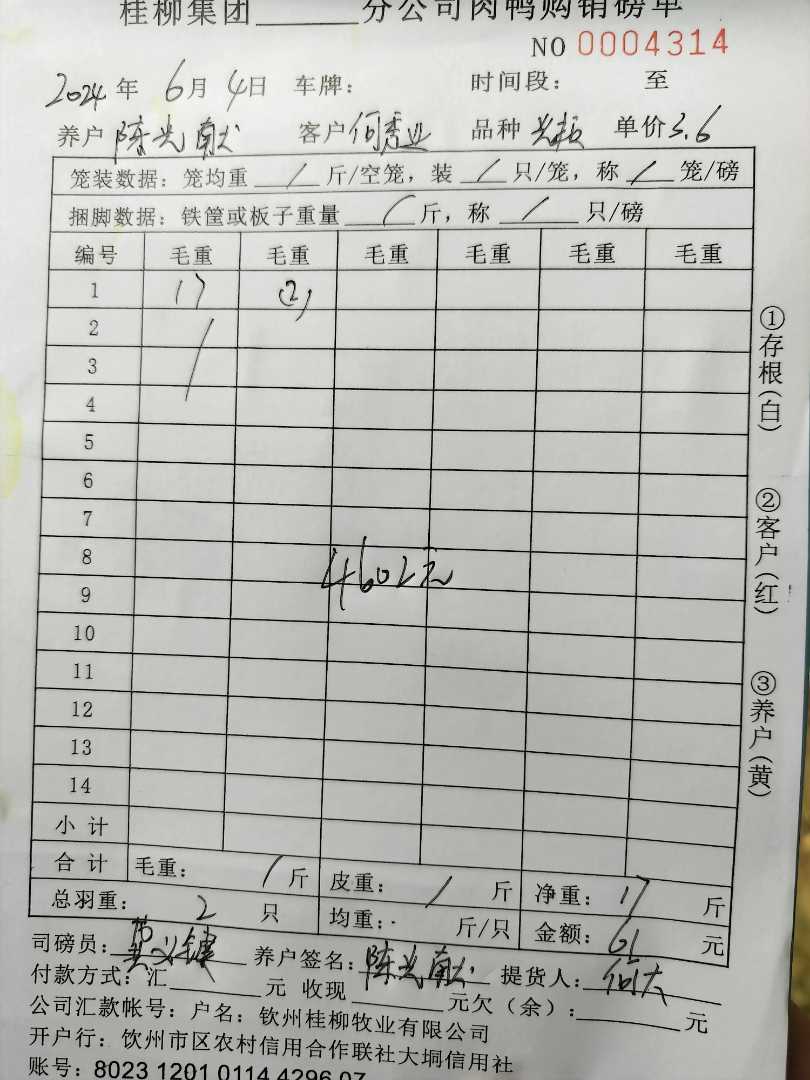 桂柳集团______分公司肉鸭购销磅单
NO 0004314
2024年 6月 4日 车牌: 时间段: 至
养户 陈光献 客户 何秀业 品种 单价 3.6
笼装数据: 笼均重 / 斤/空笼, 装 / 只/笼, 称 / 笼/磅
捆脚数据: 铁筐或板子重量 / 斤, 称 / 只/磅
编号 毛重 毛重 毛重 毛重 毛重 毛重
1 17 (2)
2
3
4
5
6
7
8
4602元
9
10
11
12
13
14
小计
合计 毛重: / 斤 皮重: / 斤 净重: 17 斤
总羽重: 2 只 均重: 斤/只 金额: 61 元
司磅员: 养户签名: 陈光献 提货人:
付款方式: 汇______元 收现______元欠(余):______元
公司汇款帐号: 户名: 钦州桂柳牧业有限公司
开户行: 钦州市区农村信用合作联社大垌信用社
账号: 8023 1201 0114 4296 07
①存根(白)
②客户(红)
③养户(黄)